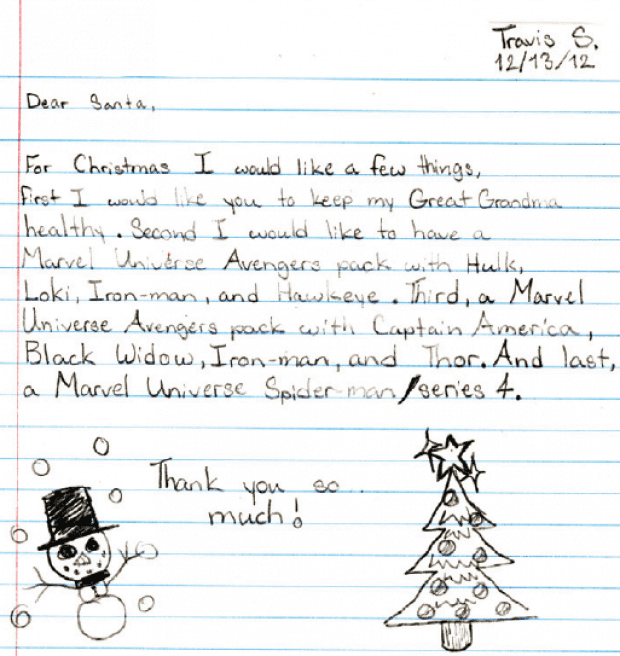 Travis S.
12/13/12
Dear Santa,
For Christmas I would like a few things,
first I would like you to keep my Great Grandma
healthy. Second I would like to have a
Marvel Universe Avengers pack with Hulk,
Loki, Iron-man, and Hawkeye. Third, a Marvel
Universe Avengers pack with Captain America,
Black Widow, Iron-man, and Thor. And last,
a Marvel Universe Spider-man/series 4.
Thank you so
much!